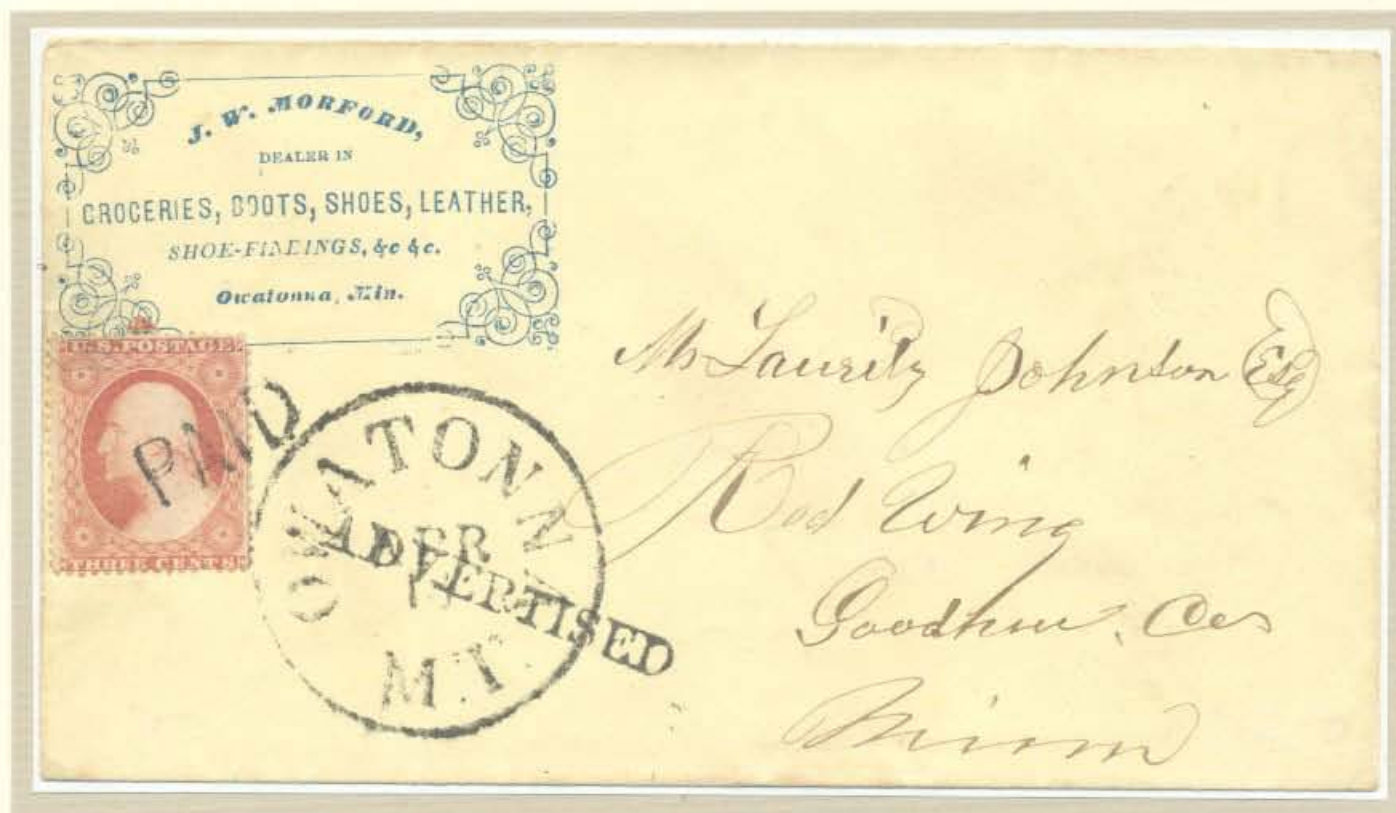 J. W. MORFORD,
DEALER IN
GROCERIES, BOOTS, SHOES, LEATHER,
SHOE-FINDINGS, &c &c.
Owatonna, Min.
U.S. POSTAGE
THREE CENTS
PAID
OWATONNA
APR
M.T.
ADVERTISED
Mr Lauritz Johnson Esq
Red Wing
Goodhue Co
Minn